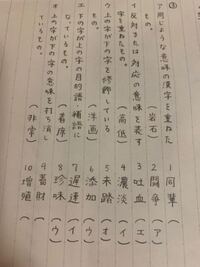 ③
ア 同じような意味の漢字を重ねた
もの。
(岩石)
イ 反対または対応の意味を表す
字を重ねたもの。
(高低)
ウ 上の字が下の字を修飾している
もの。
(洋画)
エ 下の字が上の字の目的語・補語に
なっているもの。
(着席)
オ 上の字が下の字の意味を打ち消し
ているもの。
(非常)
1 同輩 (ウ)
2 闘争 (ア)
3 吐血 (エ)
4 濃淡 (イ)
5 未踏 (オ)
6 添加 (ウ)
7 遅速 (イ)
8 珍味 (ウ)
9 蓄財
10 増殖